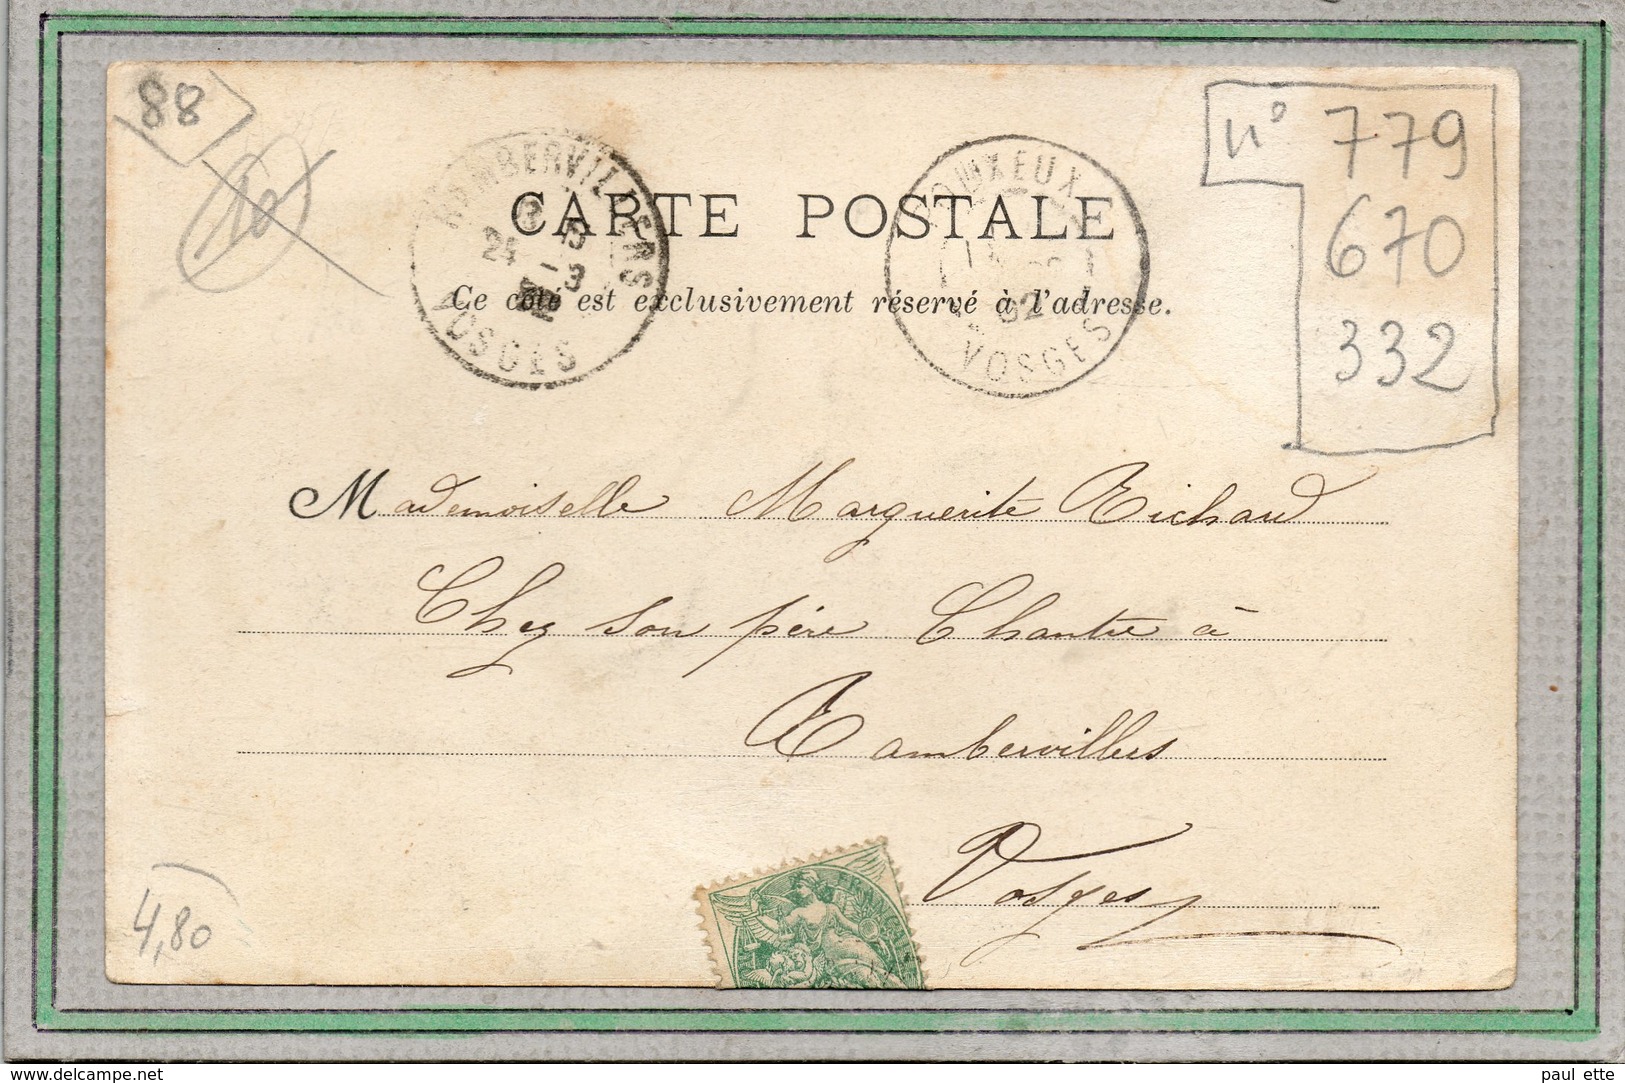 88
10
n° 779
670
332
RAMBERVILLERS
24 -3
VOSGES
OUXEUX
02
VOSGES
CARTE POSTALE
Ce côté est exclusivement réservé à l'adresse.
Mademoiselle Marguerite Richard
Chez son père Chantre à
Rambervillers
Vosges
4,80
www.delcampe.net
paul ette